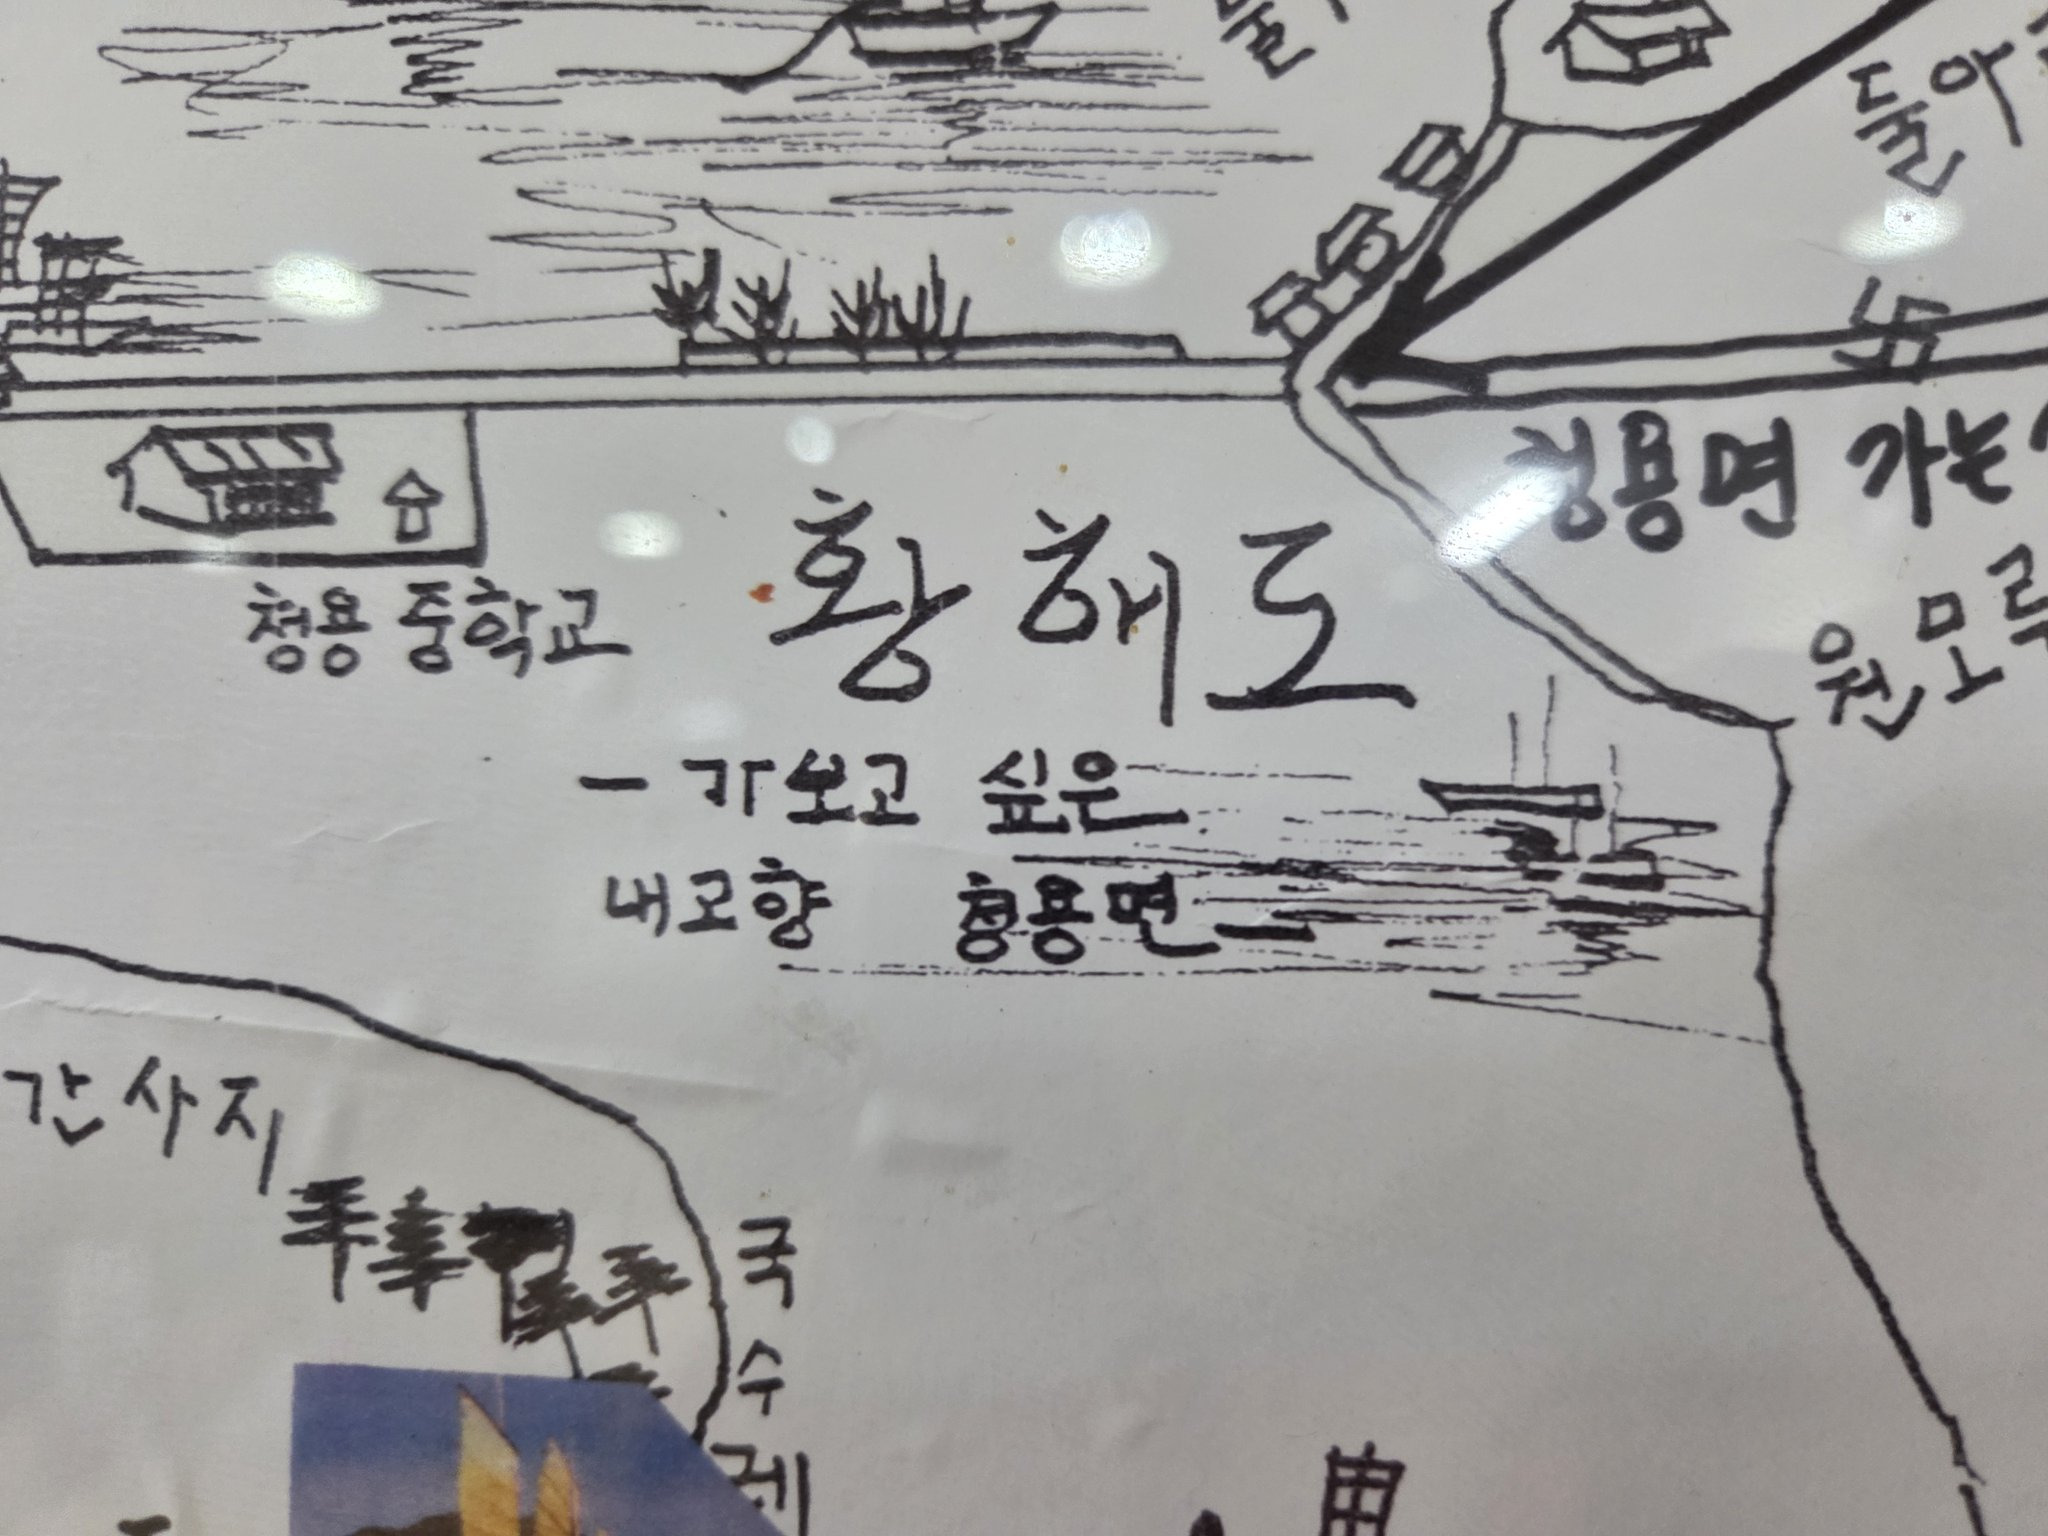 돌아
청용면 가는
원 모루
청용 중학교
황해도
- 가보고 싶은
내고향 청용면
간사지
국
수